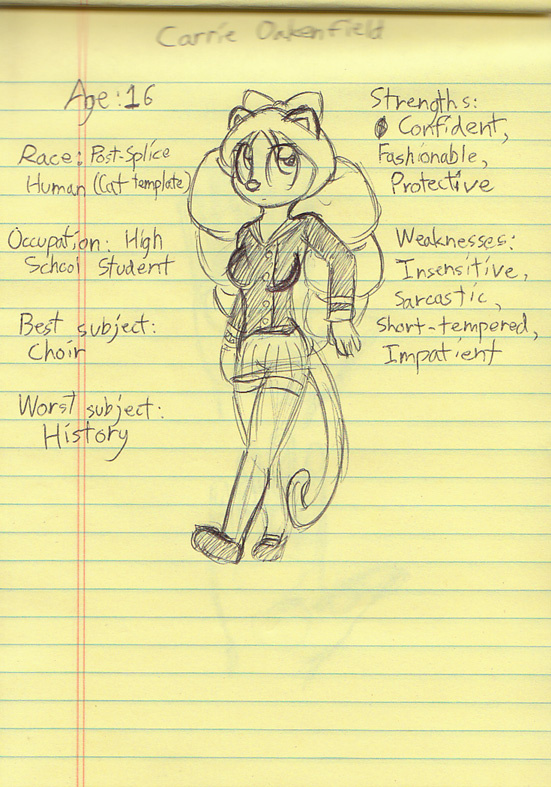 Carrie Oakenfield
Age: 16
Race: Post-Splice
Human (Cat template)
Occupation: High
School Student
Best subject:
Choir
Worst subject:
History
Strengths:
Confident,
Fashionable,
Protective
Weaknesses:
Insensitive,
Sarcastic,
Short-tempered,
Impatient